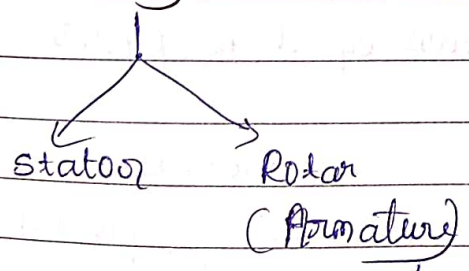 Stator Rotar
(Armature)